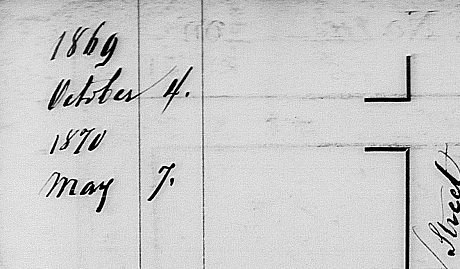 1869
October 4.
1870
May 7.
Street